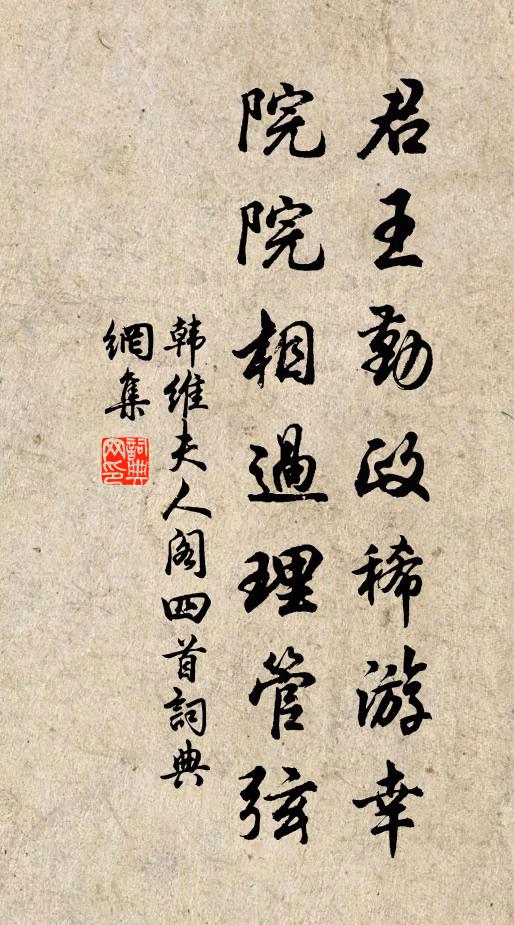 君王勤政稀游幸
院院相過理管弦
韩維夫人阁四首詞典
網集
詞典
网印